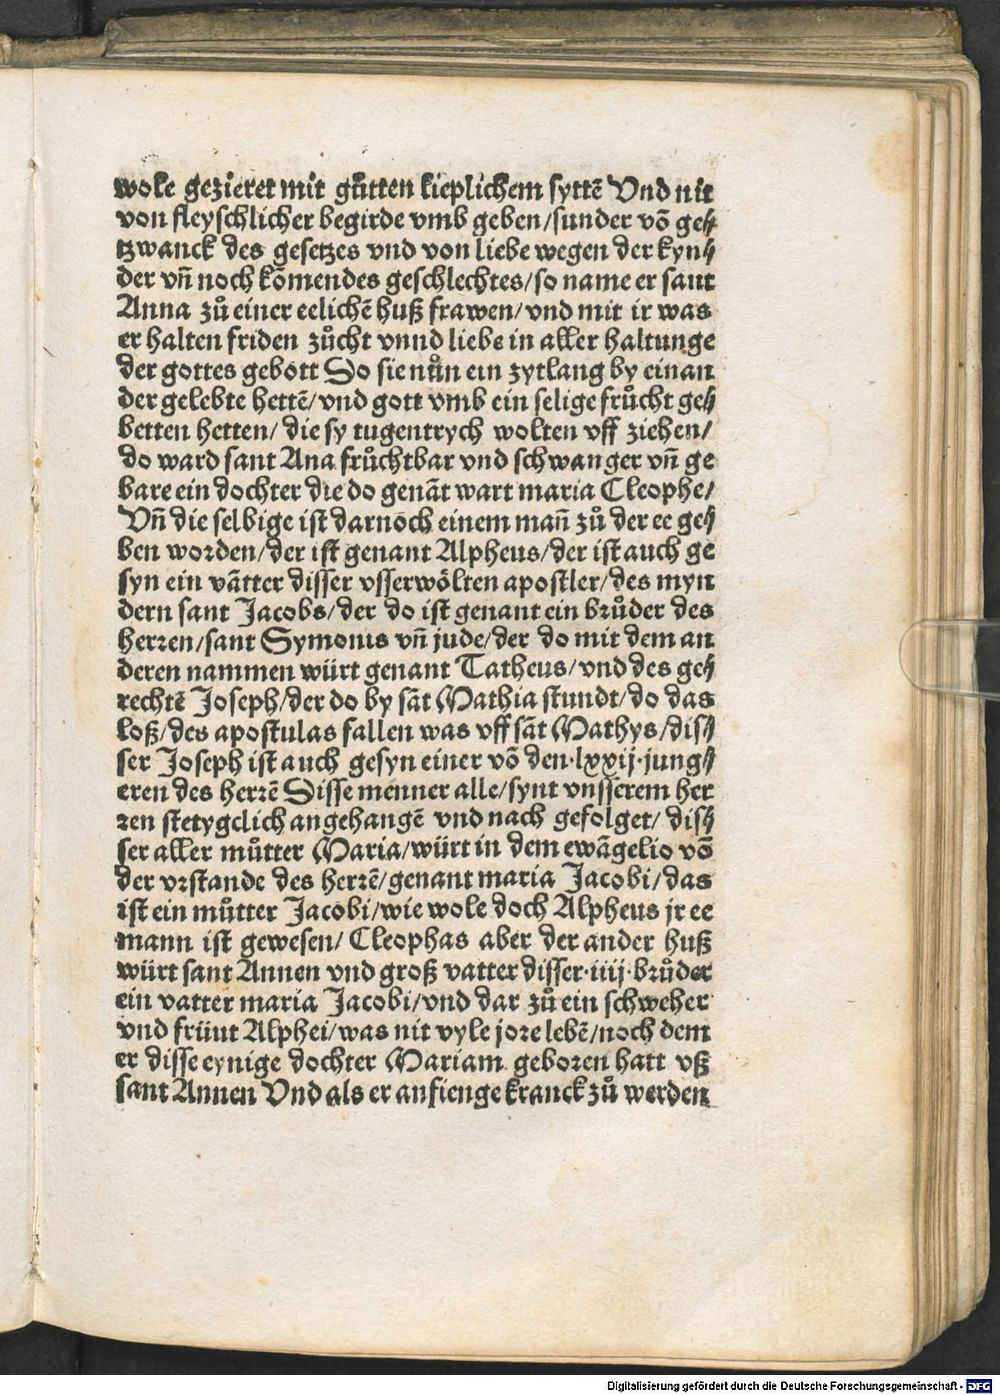 wole gezieret mit gůtten lieplichem syttē Vnd nit
von fleyschlicher begirde vmb geben/sunder vō ge⸗
tzwanck des gesetzes vnd von liebe wegen der kyn⸗
der vñ noch kōmendes geschlechtes/so name er sant
Anna zů einer eelichē huß frawen/vnd mit ir was
er halten friden zůcht vnnd liebe in aller haltunge
der gottes gebott So sie nůn ein zytlang by einan
der gelebte hettē/vnd gott vmb ein selige frůcht ge⸗
betten hetten/ die sy tugentrych wolten vff ziehen/
do ward sant Ana frůchtbar vnd schwanger vñ ge
bare ein dochter die do genāt wart maria Cleophe/
Vñ die selbige ist darnoch einem mañ zů der ee ge⸗
ben worden/der ist genant Alpheus/der ist auch ge
syn ein vātter disser vsserwölten apostler/des myn
dern sant Jacobs/der do ist genant ein brůder des
herren/sant Symonis vñ jude/der do mit dem an
deren nammen würt genant Tatheus/vnd des ge⸗
rechtē Joseph/der do by sāt Mathia stundt/do das
loß/des apostulas fallen was vff sāt Mathys/dis⸗
ser Joseph ist auch gesyn einer vō den·lxxij·jung⸗
eren des herrē Disse menner alle/synt vnsserem her
ren stetygclich angehangē vnd nach gefolget/ dis⸗
ser aller můtter Maria/würt in dem ewāgelio vō
der vrstande des herrē/genant maria Jacobi/das
ist ein můtter Jacobi/wie wole doch Alpheus jr ee
mann ist gewesen/ Cleophas aber der ander huß
würt sant Annen vnd groß vatter disser·iiij·brůder
ein vatter maria Jacobi/vnd dar zů ein schweher
vnd frünt Alphei/was nit vyle jore lebē/noch dem
er disse eynige dochter Mariam geboren hatt vß
sant Annen Vnd als er anfienge kranck zů werden
Digitalisierung gefördert durch die Deutsche Forschungsgemeinschaft - DFG